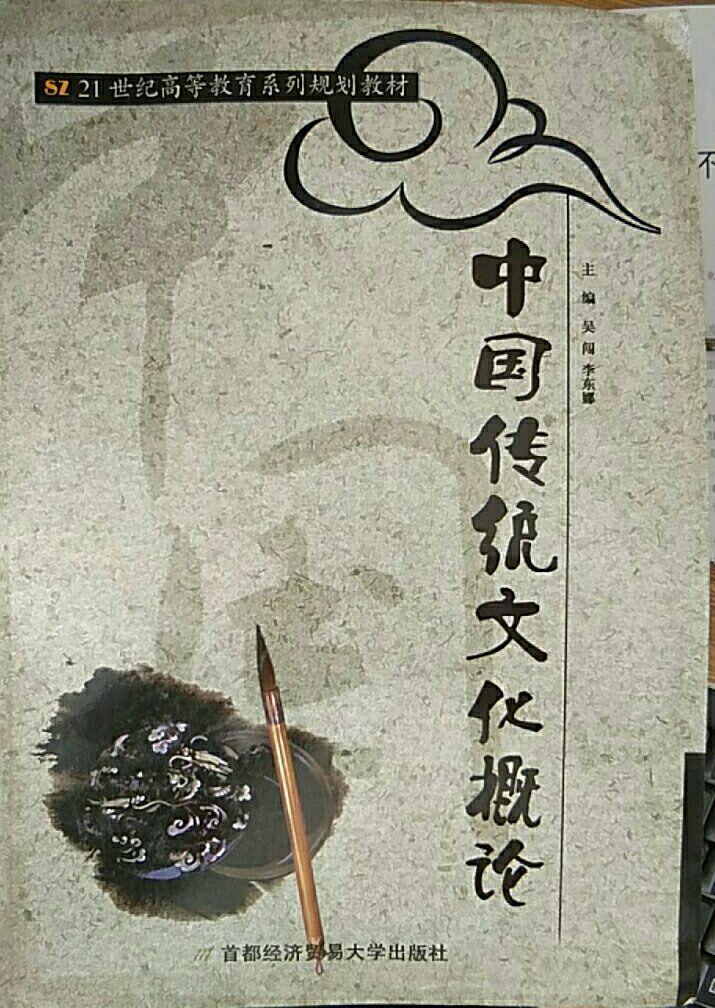 SZ 21世纪高等教育系列规划教材
中国传统文化概论
主编 吴闯 李东娜
首都经济贸易大学出版社
不